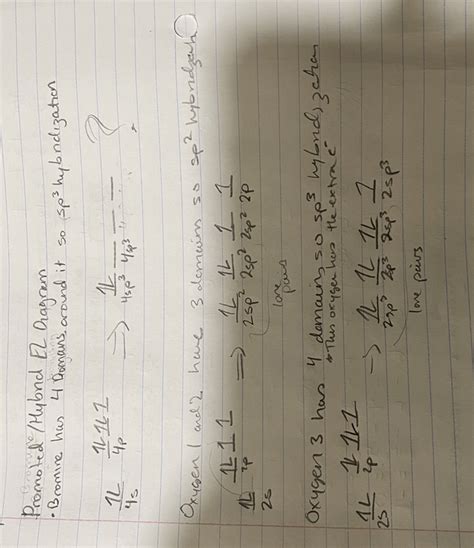 Promoted/Hybrid EL Diagram
• Bromine has 4 Domains around it so sp³ hybridization
⥮ ⥮ ⥮ 1 ⇒ ⥮ _ _ _ ?
4s 4p 4sp³ 4sp³
Oxygen 1 and 2 have 3 domains so sp² hybridization
⥮ ⥮ 1 1 ⇒ ⥮ ⥮ 1 1
2s 2p 2sp² 2sp² 2sp² 2p
lone pairs
Oxygen 3 has 4 domains so sp³ hybridization
*This oxygen has the extra e⁻
⥮ ⥮ ⥮ 1 → ⥮ ⥮ ⥮ 1
2s 2p 2sp³ 2sp³ 2sp³ 2sp³
lone pairs